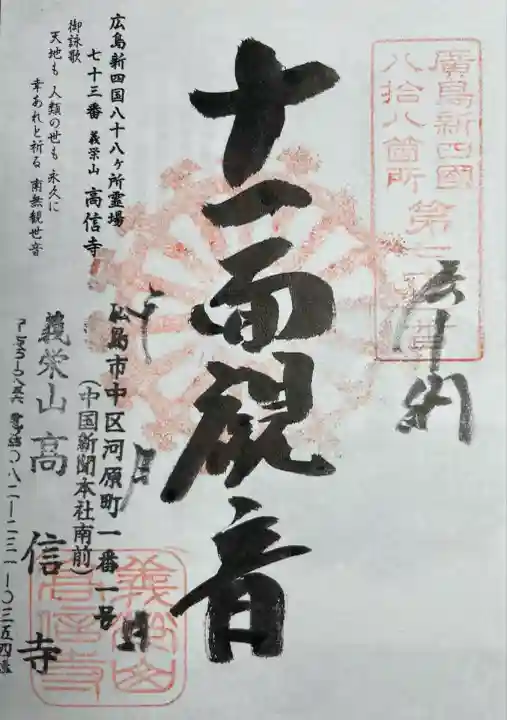 廣島新四國
八拾八箇所 第
奉拝
十一面観音
広島新四国八十八ヶ所霊場
七十三番 義栄山 高信寺
御詠歌
天地も 人類の世も 永久に
幸あれと祈る 南無観世音
年 月 日
広島市中区河原町一番一号
(中国新聞本社南前)
義栄山 高信寺
電話〇八二-二三一-〇三五四番
義榮山
高信寺